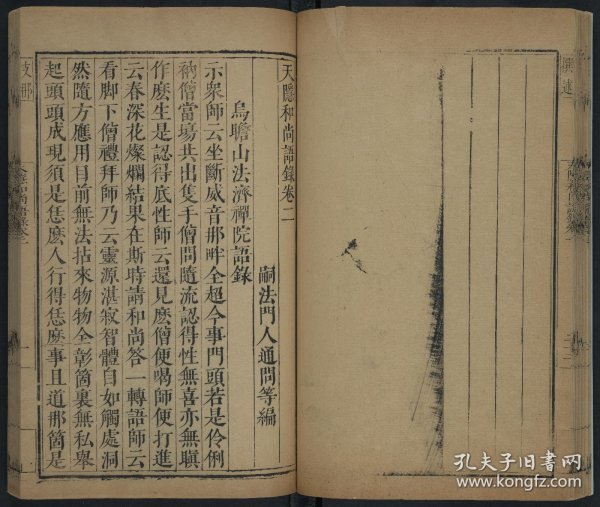 天隱和尚語錄卷二
嗣法門人通問等編
烏瞻山法濟禪院語錄
示衆師云坐斷威音那畔全超今事門頭若是伶俐
衲僧當塲共出隻手僧問隨流認得性無喜亦無嗔
作麽生是認得底性師云還見麽僧便喝師便打進
云春深花燦爛結果在斯時請和尚答一轉語師云
看脚下僧禮拜師乃云靈源湛寂智體自如觸處洞
然隨方應用目前無法拈來物物全彰箇裏無私舉
起頭頭成現須是恁麽人行得恁麽事且道那箇是
支那
撰述
孔夫子旧書网
www.kongfz.com